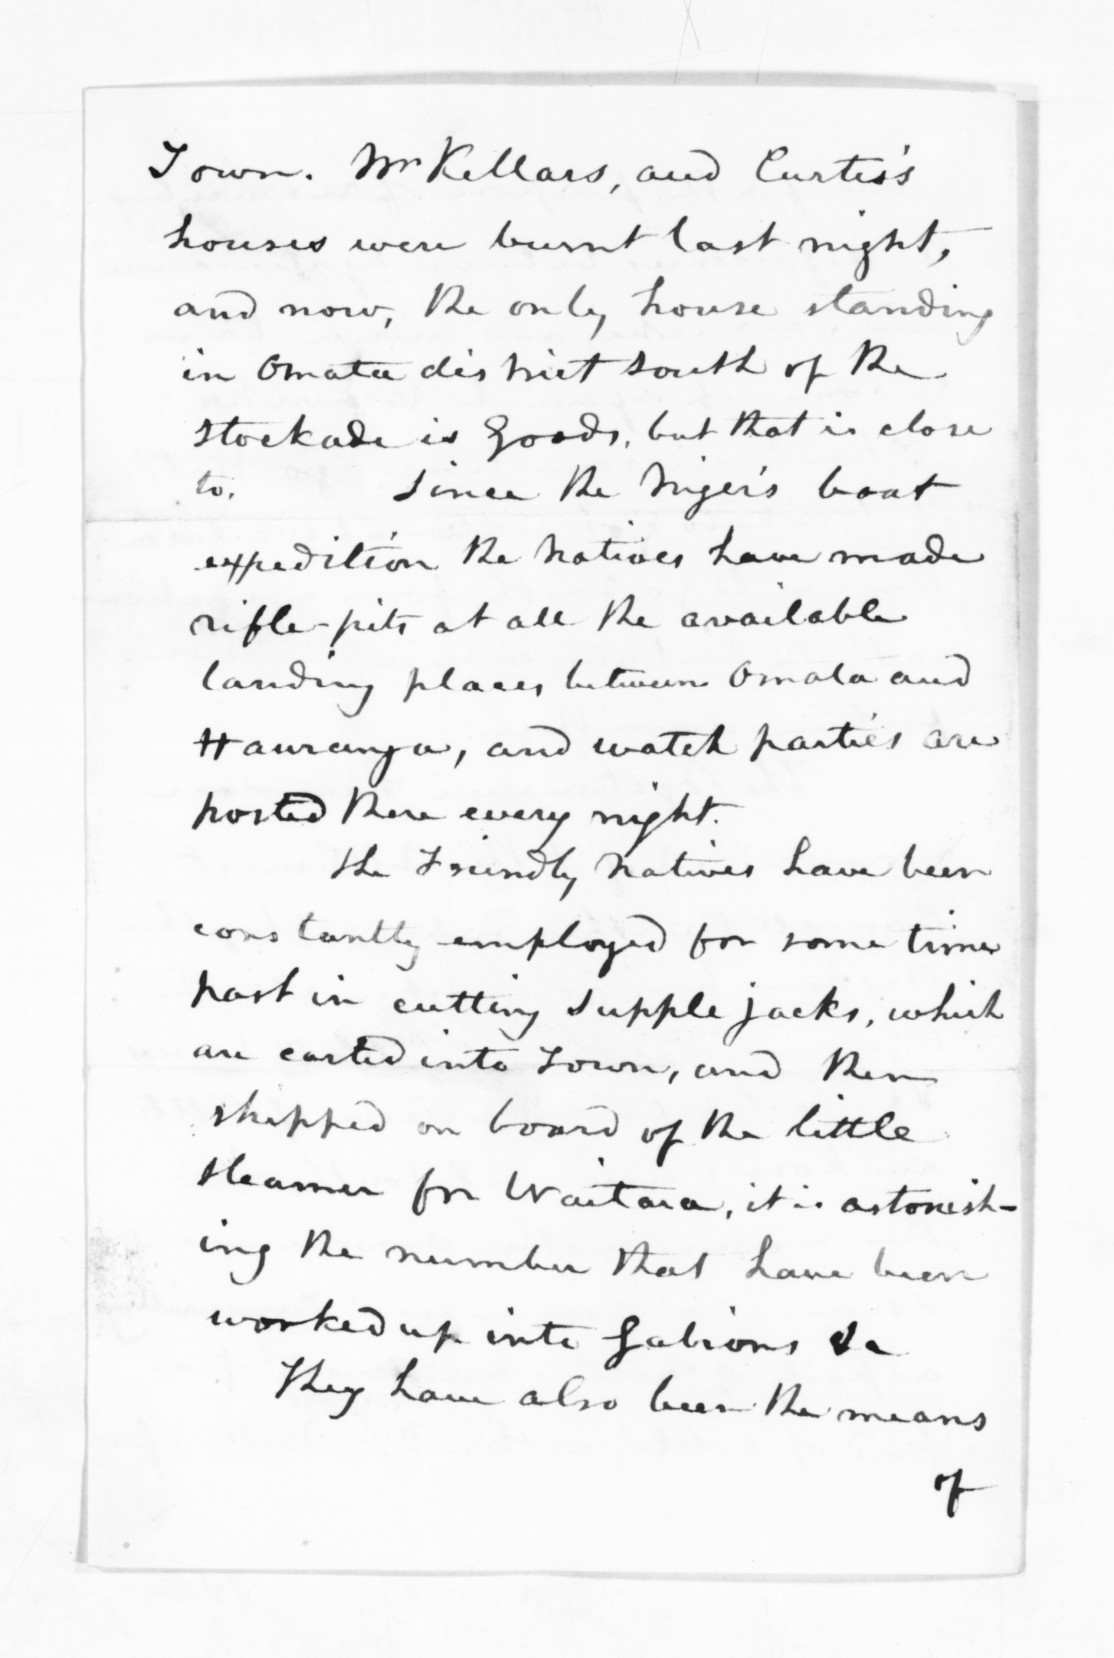 Town. Mr Kellars, and Curtis's
houses were burnt last night,
and now, the only house standing
in Omata district south of the
stockade is Goods, but that is close
to. Since the Niger's boat
expedition the Natives have made
rifle-pits at all the available
landing places between Omata and
Hauranga, and watch parties are
posted there every night.
The Friendly Natives have been
constantly employed for some time
past in cutting Supple jacks, which
are carted into Town, and then
shipped on board of the little
steamer for Waitara, it is astonish-
ing the number that have been
worked up into Gabions &c
They have also been the means
of